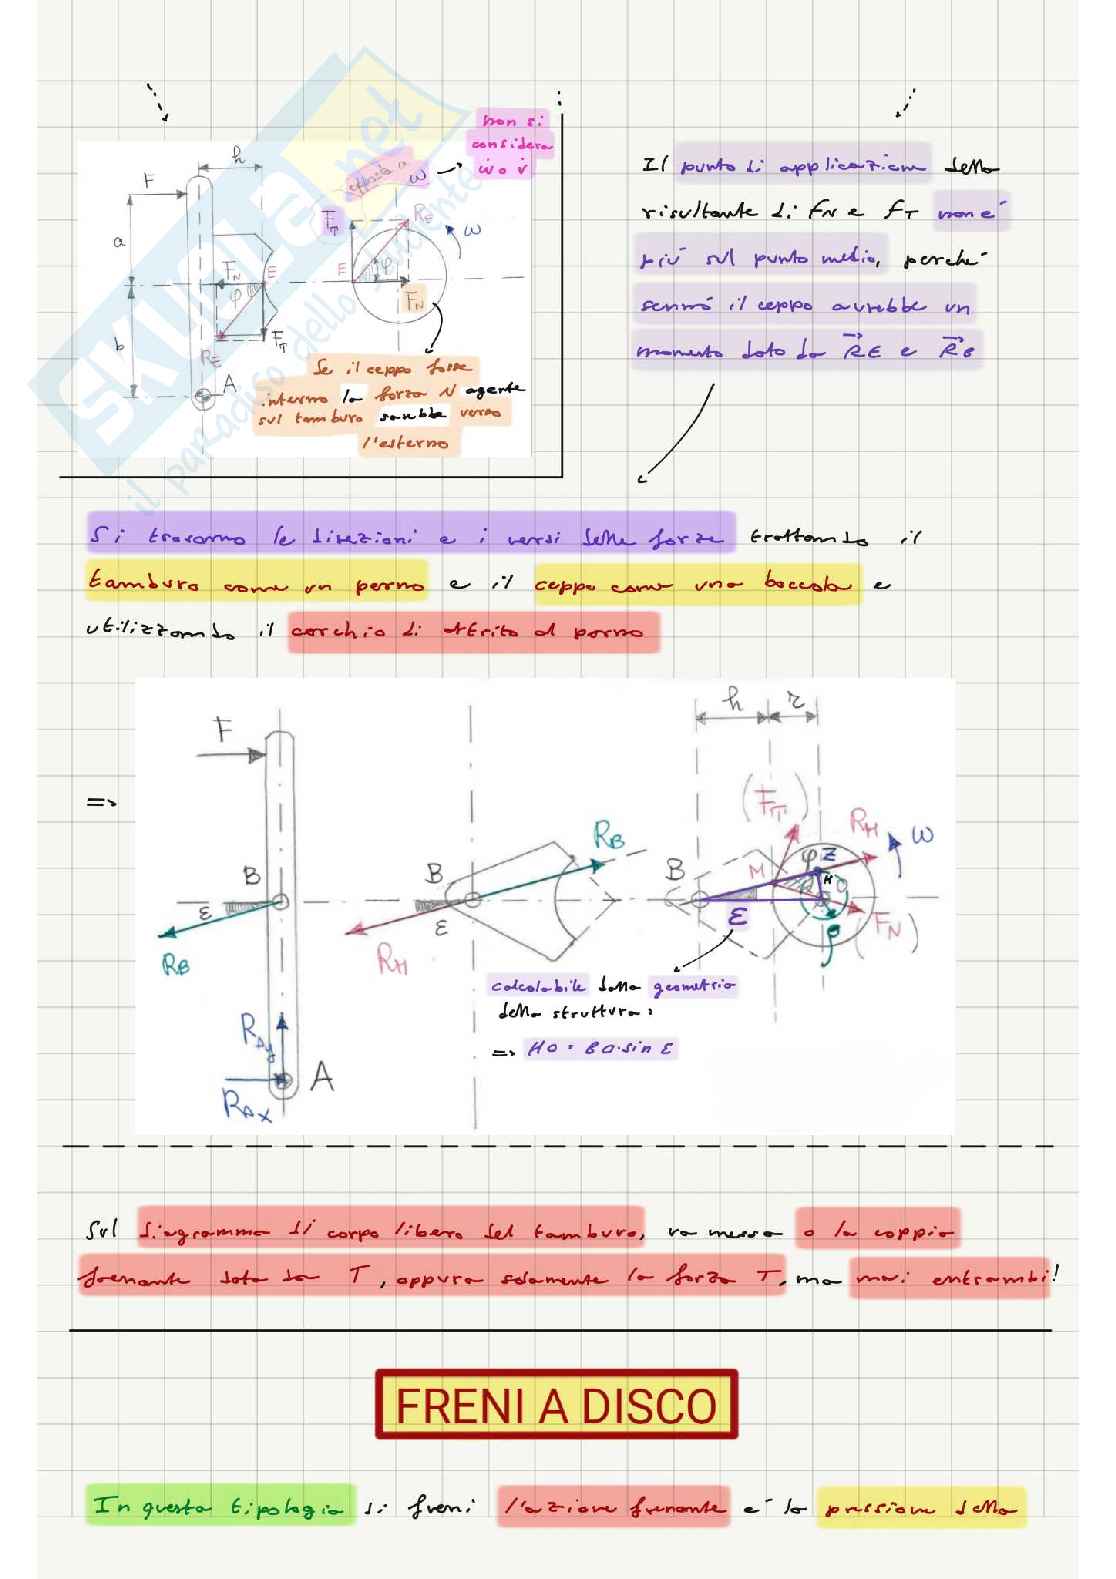 non si
considera
ω̇ o v̇
opposta a
ω
h
F
R_E
F_T
ω
a
F_N
E
E
φ
φ
F_N
b
R_E
F_T
A
Se il ceppo fosse
interno la forza N agente
sul tamburo sarebbe verso
l'esterno
SKUOLA.net
il paradiso dello studente
Il punto di applicazione della
risultante di FN e FT non è
più sul punto medio, perchè
sennò il ceppo avrebbe un
momento dato da R⃗E e R⃗B
Si trovano le direzioni e i versi delle forze trattando il
tamburo come un perno e il ceppo come una boccola e
utilizzando il cerchio di attrito al perno
h
r
F
(F_T)
R_B
R_M
ω
=>
B
B
B
M
φ
Z
H
O
ε
ε
ε
R_B
R_M
ρ
(F_N)
calcolabile dalla geometria
della struttura:
=> HO = BO·sin ε
R_Ay
A
R_Ax
Sul diagramma di corpo libero del tamburo, va messa o la coppia
frenante data da T, oppure solamente la forza T, ma mai entrambi!
FRENI A DISCO
In questa tipologia di freni l'azione frenante è la pressione della